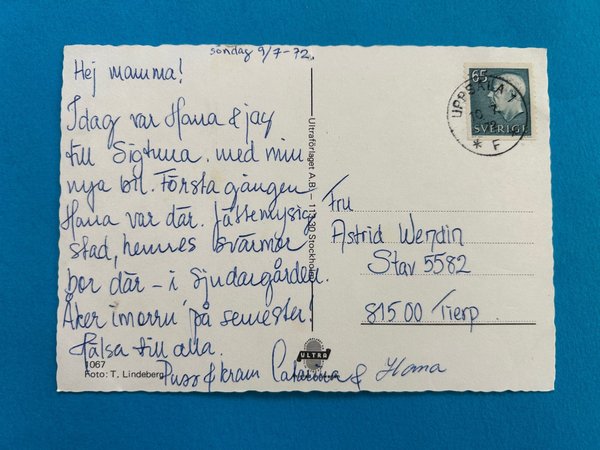 söndag 9/7-72.
Hej mamma!
Idag var Hanna & jag
till Sigtuna. med min
nya bil. Första gången
Hanna var där. Jättemysig
stad, hennes svärmor
bor där – i Sjudargården.
Åker imorru' på semester!
Hälsa till alla.
Puss & kram Catarina & Hanna
1067
Foto: T. Lindeberg
Ultraförlaget A.B. – 113 30 Stockholm
ULTRA
65
SVERIGE
UPPSALA 1
10 7
72
* F
Fru
Astrid Wendin
Stav 5582
81500 Tierp